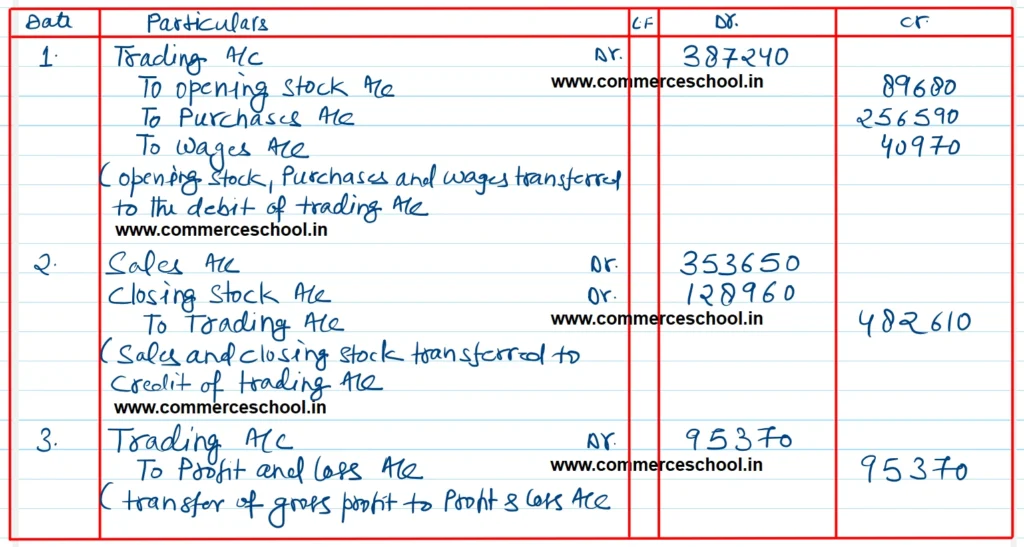 Date Particulars LF Dr. Cr.
1. Trading A/c Dr. 387240
www.commerceschool.in
To opening stock A/c 89680
To Purchases A/c 256590
To wages A/c 40970
(opening stock, Purchases and wages transferred
to the debit of trading A/c
www.commerceschool.in
2. Sales A/c Dr. 353650
Closing Stock A/c Dr. 128960
To Trading A/c www.commerceschool.in 482610
(Sales and closing stock transferred to
credit of trading A/c
www.commerceschool.in
3. Trading A/c Dr. 95370
To Profit and loss A/c www.commerceschool.in 95370
(transfer of gross profit to Profit & loss A/c